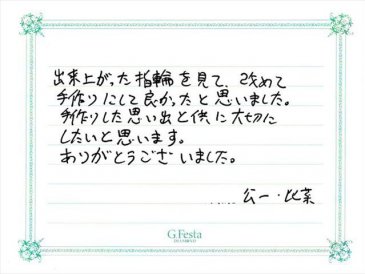 出来上がった指輪を見て、改めて
手作りにして良かったと思いました。
手作りした思い出と供に大切に
したいと思います。
ありがとうございました。
公一・比菜
G.Festa